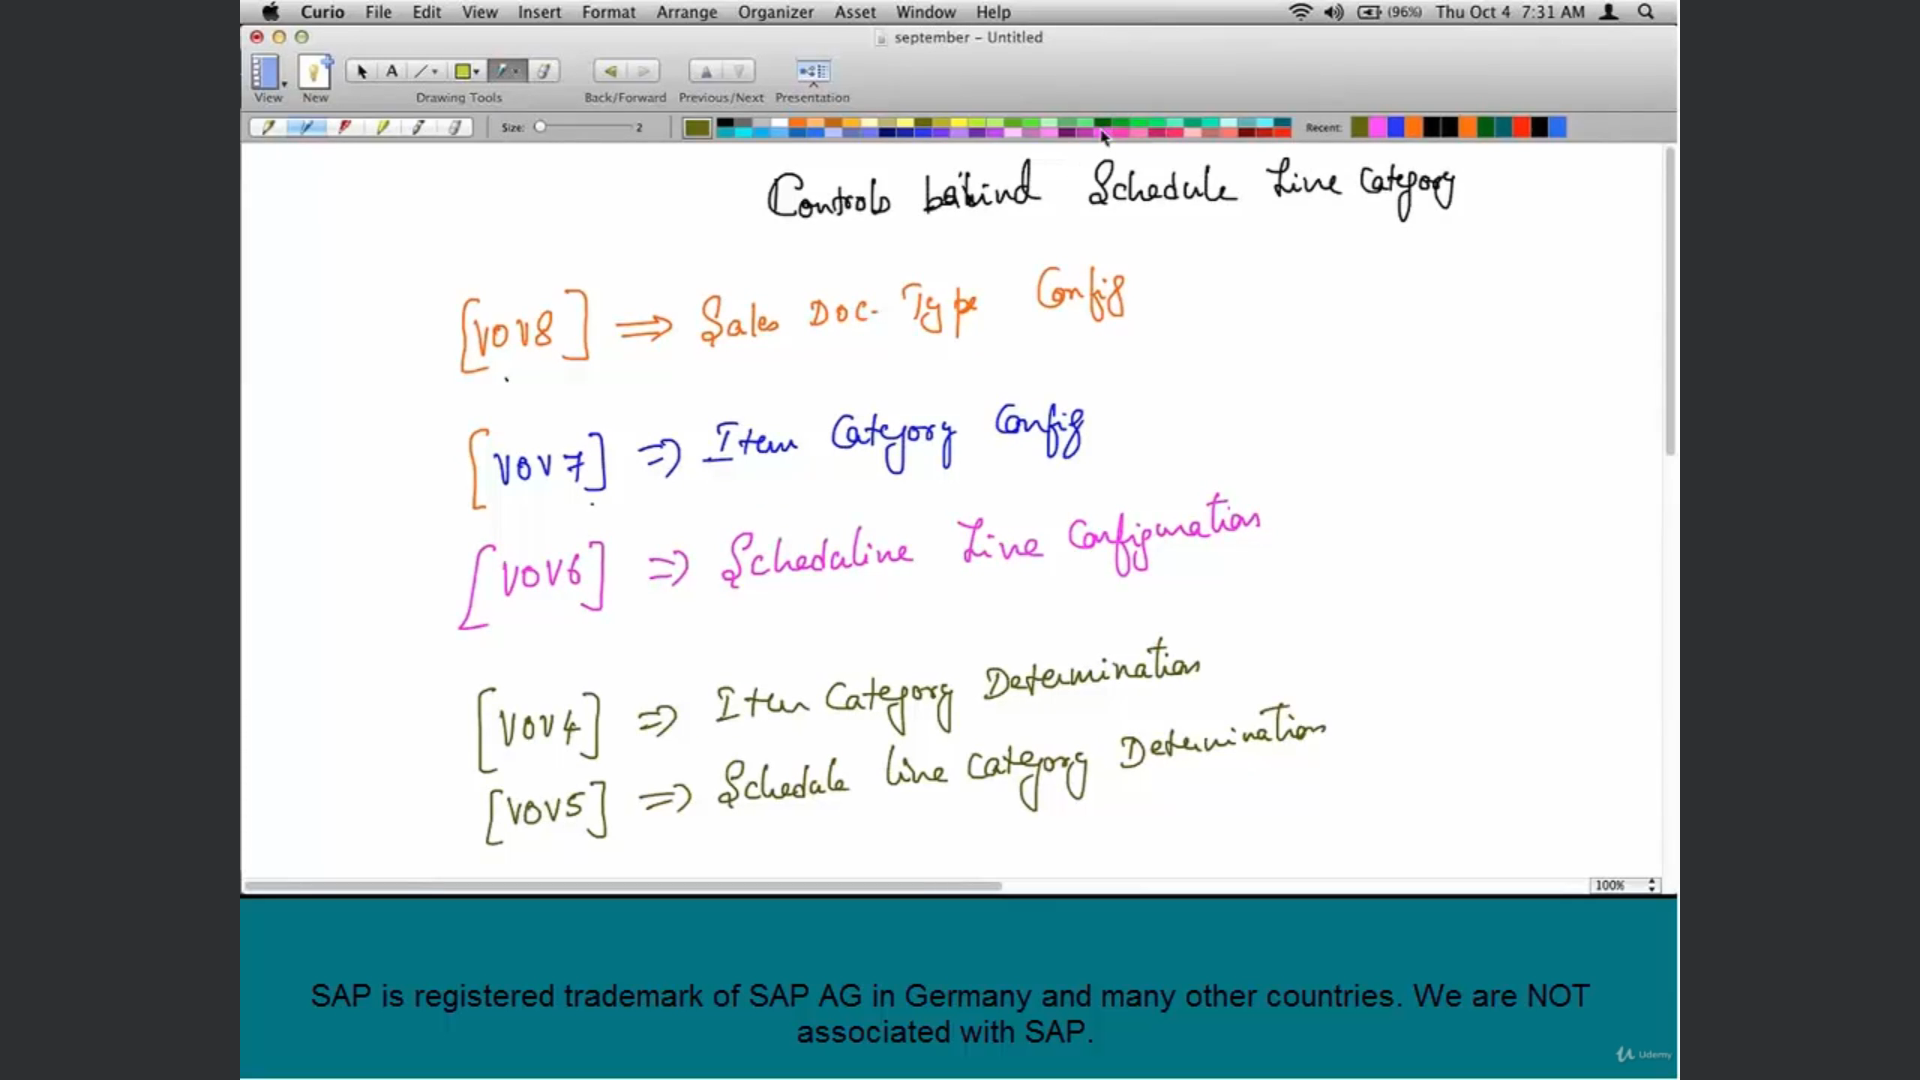 Curio File Edit View Insert Format Arrange Organizer Asset Window Help (96%) Thu Oct 4 7:31 AM
september – Untitled
View New Drawing Tools Back/Forward Previous/Next Presentation
Size: 2 Recent:
Controls behind Schedule Line Category
[VOV8] ⇒ Sales Doc. Type Config
[VOV7] ⇒ Item Category Config
[VOV6] ⇒ Schedaline Line Configuration
[VOV4] ⇒ Item Category Determination
[VOV5] ⇒ Schedule line Category Determination
100%
SAP is registered trademark of SAP AG in Germany and many other countries. We are NOT
associated with SAP.
Udemy